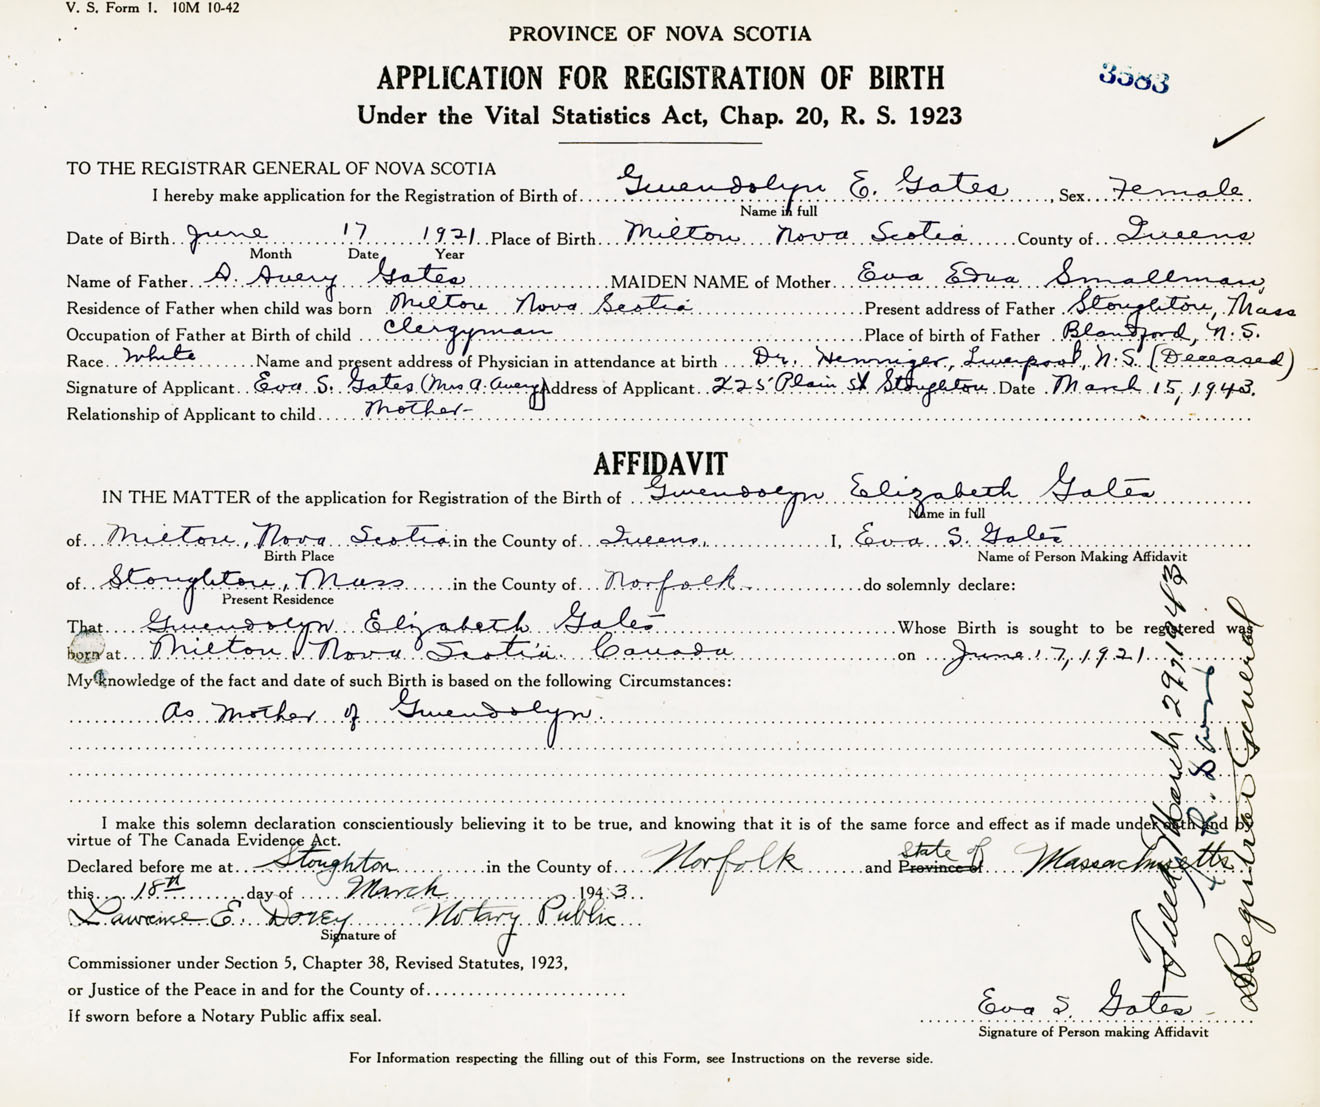 V. S. Form 1. 10M 10-42
PROVINCE OF NOVA SCOTIA
APPLICATION FOR REGISTRATION OF BIRTH
3583
Under the Vital Statistics Act, Chap. 20, R. S. 1923
TO THE REGISTRAR GENERAL OF NOVA SCOTIA
I hereby make application for the Registration of Birth of Gwendolyn E. Gates, Sex Female
Name in full
Date of Birth June 17 1921 Place of Birth Milton Nova Scotia County of Queens
Month Date Year
Name of Father A. Avery Gates MAIDEN NAME of Mother Eva Edna Smallman
Residence of Father when child was born Milton Nova Scotia Present address of Father Stoughton, Mass
Occupation of Father at Birth of child Clergyman Place of birth of Father Blandford, N.S.
Race White Name and present address of Physician in attendance at birth Dr. Henniger, Liverpool, N.S. (Deceased)
Signature of Applicant Eva S. Gates (Mrs A. Avery) Address of Applicant 225 Plain St Stoughton Date March 15, 1943.
Relationship of Applicant to child Mother-
AFFIDAVIT
IN THE MATTER of the application for Registration of the Birth of Gwendolyn Elizabeth Gates
Name in full
of Milton, Nova Scotia in the County of Queens, I, Eva S. Gates
Birth Place Name of Person Making Affidavit
of Stoughton, Mass in the County of Norfolk do solemnly declare:
Present Residence
That Gwendolyn Elizabeth Gates Whose Birth is sought to be registered was
born at Milton, Nova Scotia. Canada on June 17, 1921
My knowledge of the fact and date of such Birth is based on the following Circumstances:
As mother of Gwendolyn.
I make this solemn declaration conscientiously believing it to be true, and knowing that it is of the same force and effect as if made under oath and by
virtue of The Canada Evidence Act.
Declared before me at Stoughton in the County of Norfolk and Province of State of Massachusetts
this 18th day of March 1943
Lawrence E. Dovey Notary Public
Signature of
Commissioner under Section 5, Chapter 38, Revised Statutes, 1923,
or Justice of the Peace in and for the County of
If sworn before a Notary Public affix seal.
Eva S. Gates
Signature of Person making Affidavit
For Information respecting the filling out of this Form, see Instructions on the reverse side.
Filed March 29, 1943
Registrar General